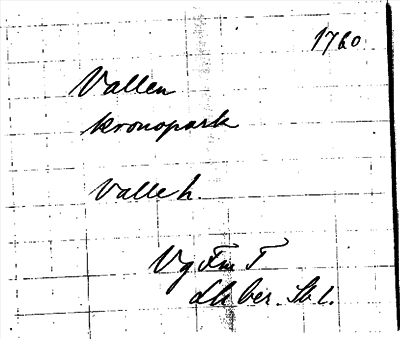 1760
Vallen
kronopark
Valle h.
Vg Fm T
dk ber. Sk l.